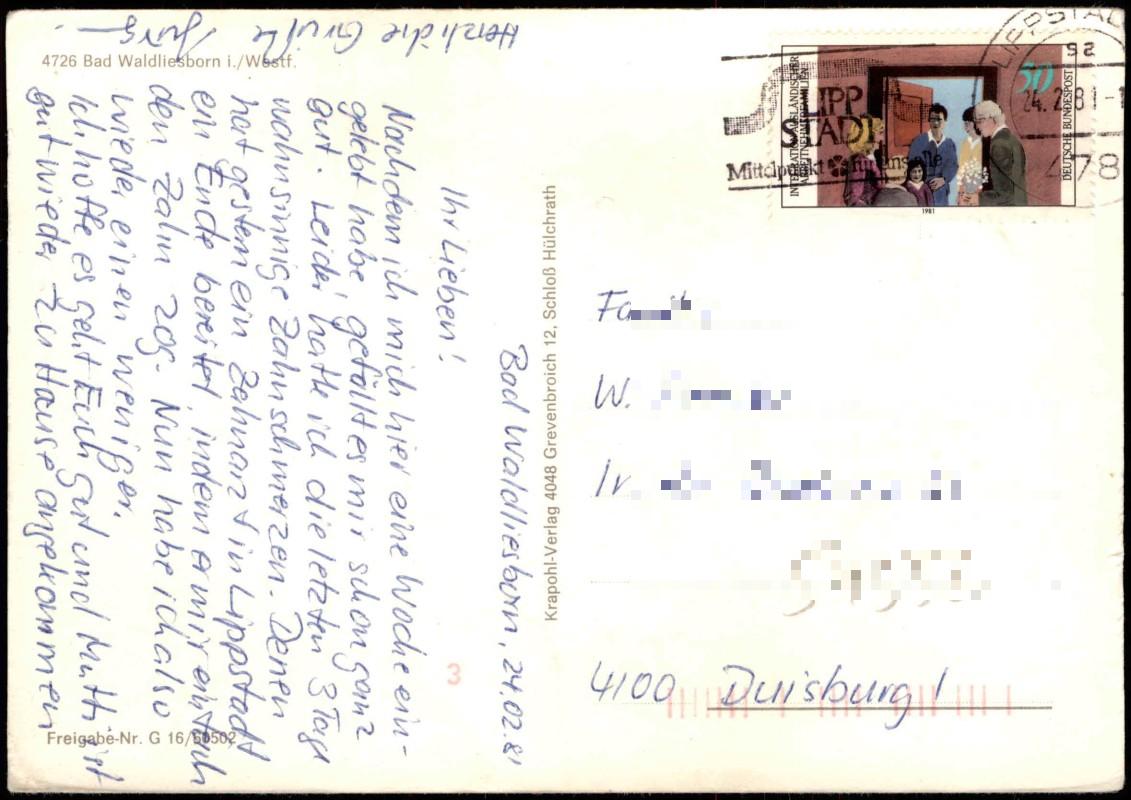 4726 Bad Waldliesborn i./Westf.
Bad Waldliesborn, 24.02.81
Ihr Lieben!
Nachdem ich mich hier eine Woche ein-
gelebt habe, gefällt es mir schon ganz
gut. Leider hatte ich die letzten 3 Tage
wahnsinnige Zahnschmerzen. Denen
hat gestern ein Zahnarzt in Lippstadt
ein Ende bereitet, indem er mir einfach
den Zahn zog. Nun habe ich also
wieder einen weniger.
Ich hoffe es geht Euch gut und Mutti ist
gut wieder zu Hause angekommen
Herzliche Grüße
Freigabe-Nr. G 16/60502
Krapohl-Verlag 4048 Grevenbroich 12, Schloß Hülchrath
3
LIPPSTADT
sa
24.2.81-1
478
LIPP
STADT
Mittelpunkt für uns alle
INTEGRATION AUSLÄNDISCHER
ARBEITNEHMERFAMILIEN
50
DEUTSCHE BUNDESPOST
1981
W.
4100 Duisburg 1